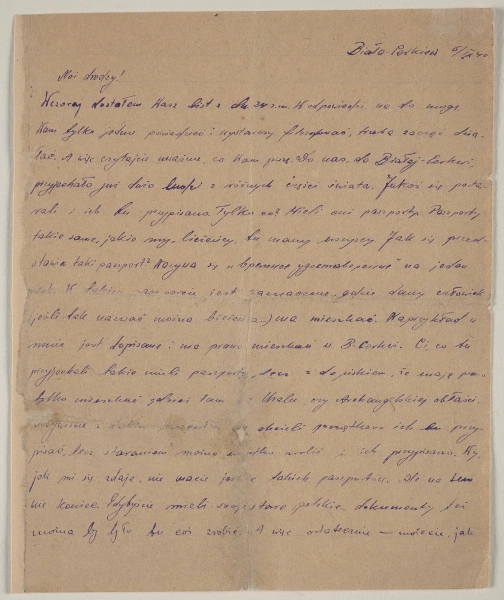 Biała-Cerkiew 6/IX 40
Moi drodzy!
Wczoraj dostałem Wasz list z dn. 24 z.m. W odpowiedzi na to mogę
Wam tylko jedno powiedzieć: wystarczy filozofować, trzeba zacząć dzia-
łać. A więc czytajcie uważnie, co Wam piszę. Do nas, do Białej-Cerkwi,
przyjechało już dużo ludzi z różnych części świata. Jakoś się posta-
rali i ich tu przypisano. Tylko co? Mieli oni paszporty. Paszporty
takie same, jakie my, bieżeńcy, tu mamy wszyscy. Jak się przed-
stawia taki paszport? Nazywa się "временное удостоверение" na jeden
W takim paszporcie jest zaznaczone, gdzie dany człowiek
(jeśli tak nazwać można bieżeńca...) ma mieszkać. Naprzykład u
mnie jest dopisane: ma prawo mieszkać w B-Cerkwi. Ci, co tu
przyjechali takie mieli paszporty, lecz z dopiskiem, że mają pra-
tylko mieszkać gdzieś tam w Uralu czy Archangielskiej obłaści.
z takim chcieli początkowo ich tu przy-
pisać, lecz staraniem można zrobić i ich przypisano. Wy,
jak mi się zdaje, nie macie jeszcze takich paszportów. Ale na tem
nie koniec. Gdybyście mieli swoje stare polskie dokumenty też
można by było tu coś zrobić. A więc ostatecznie — możecie, jak